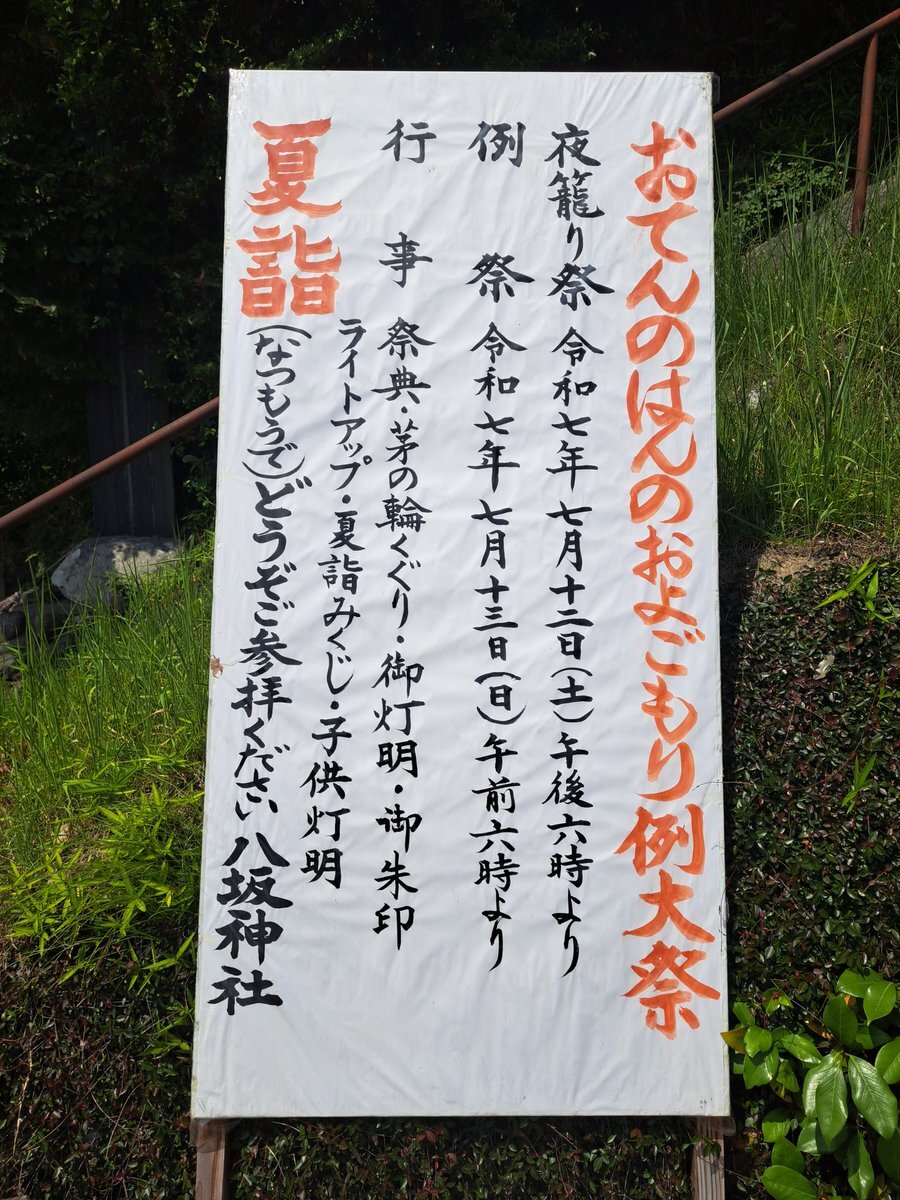 おてんのはんのおよごもり例大祭
夜籠り祭 令和七年七月十二日(土)午後六時より
例祭 令和七年七月十三日(日)午前六時より
行事 祭典・茅の輪くぐり・御灯明・御朱印
ライトアップ・夏詣みくじ・子供灯明
夏詣(なつもうで)どうぞご参拝ください 八坂神社